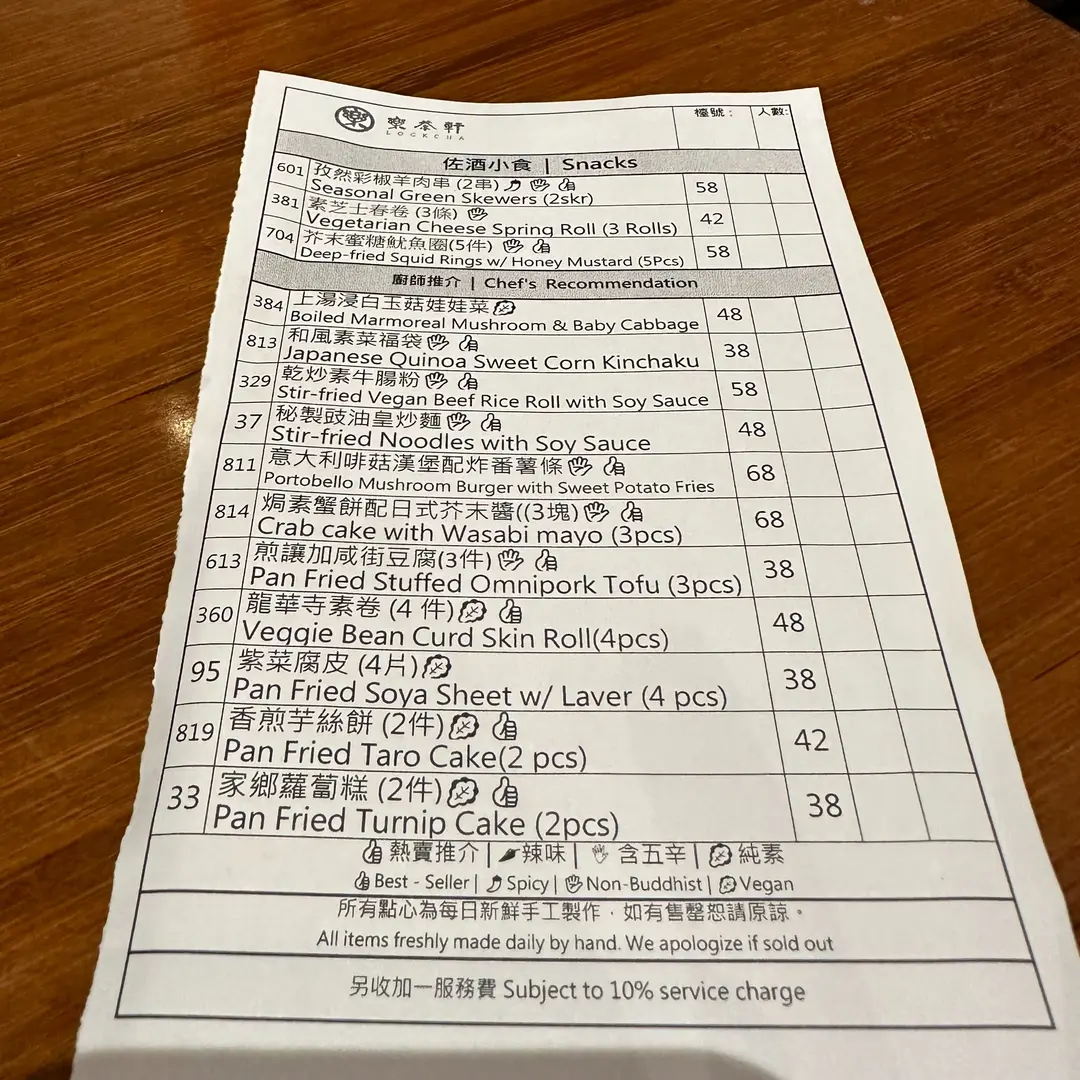 樂茶軒
LOCKCHA
檯號：
人數：
佐酒小食 | Snacks
601 孜然彩椒羊肉串 (2串) 58
Seasonal Green Skewers (2skr)
381 素芝士春卷 (3條) 42
Vegetarian Cheese Spring Roll (3 Rolls)
704 芥末蜜糖魷魚圈(5件) 58
Deep-fried Squid Rings w/ Honey Mustard (5Pcs)
廚師推介 | Chef's Recommendation
384 上湯浸白玉菇娃娃菜 48
Boiled Marmoreal Mushroom & Baby Cabbage
813 和風素菜福袋 38
Japanese Quinoa Sweet Corn Kinchaku
329 乾炒素牛腸粉 58
Stir-fried Vegan Beef Rice Roll with Soy Sauce
37 秘製豉油皇炒麵 48
Stir-fried Noodles with Soy Sauce
811 意大利啡菇漢堡配炸番薯條 68
Portobello Mushroom Burger with Sweet Potato Fries
814 焗素蟹餅配日式芥末醬((3塊) 68
Crab cake with Wasabi mayo (3pcs)
613 煎讓加咸街豆腐(3件) 38
Pan Fried Stuffed Omnipork Tofu (3pcs)
360 龍華寺素卷 (4 件) 48
Veggie Bean Curd Skin Roll(4pcs)
95 紫菜腐皮 (4片) 38
Pan Fried Soya Sheet w/ Laver (4 pcs)
819 香煎芋絲餅 (2件) 42
Pan Fried Taro Cake(2 pcs)
33 家鄉蘿蔔糕 (2件) 38
Pan Fried Turnip Cake (2pcs)
熱賣推介 | 辣味 | 含五辛 | 純素
Best - Seller | Spicy | Non-Buddhist | Vegan
所有點心為每日新鮮手工製作，如有售罄恕請原諒。
All items freshly made daily by hand. We apologize if sold out
另收加一服務費 Subject to 10% service charge